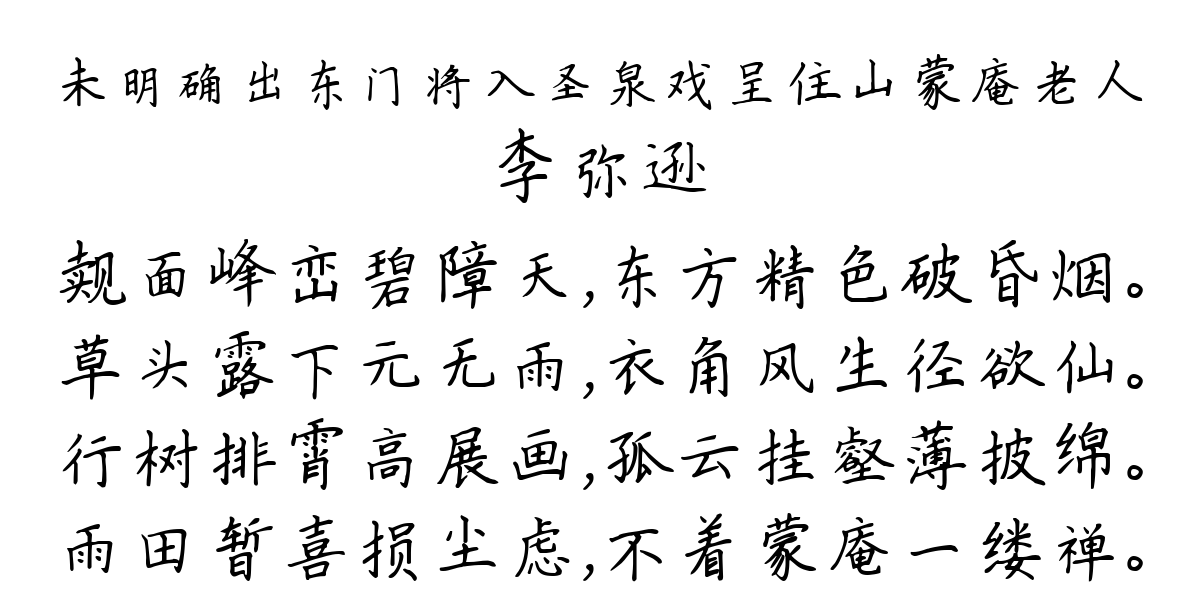 未明确出东门将入圣泉戏呈住山蒙庵老人
李弥逊
觌面峰峦碧障天,东方精色破昏烟。
草头露下元无雨,衣角风生径欲仙。
行树排霄高展画,孤云挂壑薄披绵。
雨田暂喜损尘虑,不着蒙庵一缕禅。